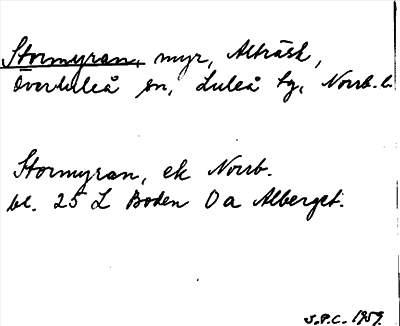 Stormyran, myr, Alträsk,
Överluleå sn, Luleå tg, Norrb. l.
Stormyran, ek Norrb.
bl. 25 L Boden O a Alberget.
S.P.C. 1959.